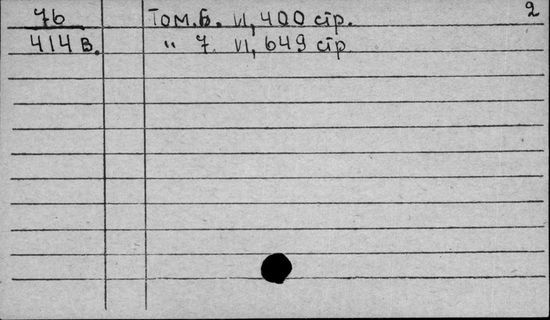 76 Том. 6. VI, 400 стр. 2
414 В. " 7. VI, 649 стр